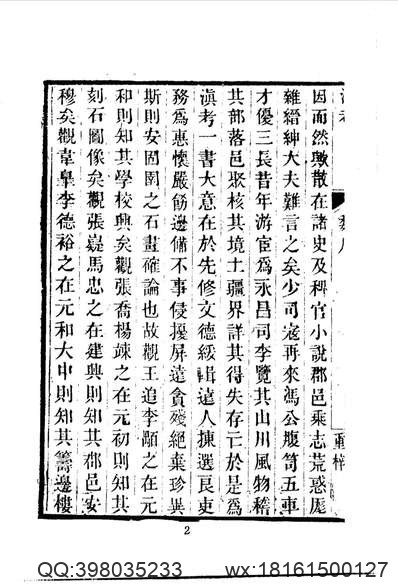 因而然歟散在諸史及稗官小說郡邑乘志荒惑厖
雜縉紳大夫難言之矣少司寇再來馮公腹笥五車
才優三長昔年游宦爲永昌司李覽其山川風物稽
其部落邑聚核其境土疆界詳其得失存亡於是爲
滇考一書大意在於先修文德綏輯遠人揀選良吏
務爲惠懷嚴飭邊備不事侵擾屏遠貪殘絕棄珍異
斯則安固圉之石畫確論也故觀王追李顒之在元
和則知其學校興矣觀張喬楊竦之在元初則知其
刻石圖像矣觀張嶷馬忠之在建興則知其郡邑安
穆矣觀韋皋李德裕之在元和大中則知其籌邊樓
2
QQ:398035233
wx:18161500127